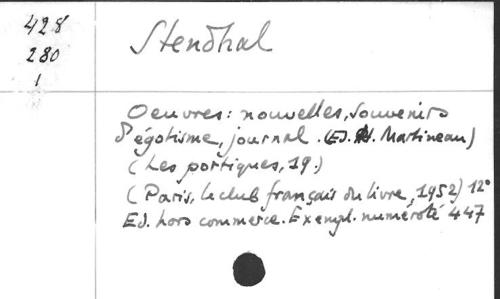 428
280
1
Stendhal
Oeuvres: nouvelles, souvenirs
d'égotisme, journal. (Ed. H. Martineau)
(Les portiques, 19.)
(Paris, le club français du livre, 1952) 12°
Ed. hors commerce. Exempl. numéroté 447